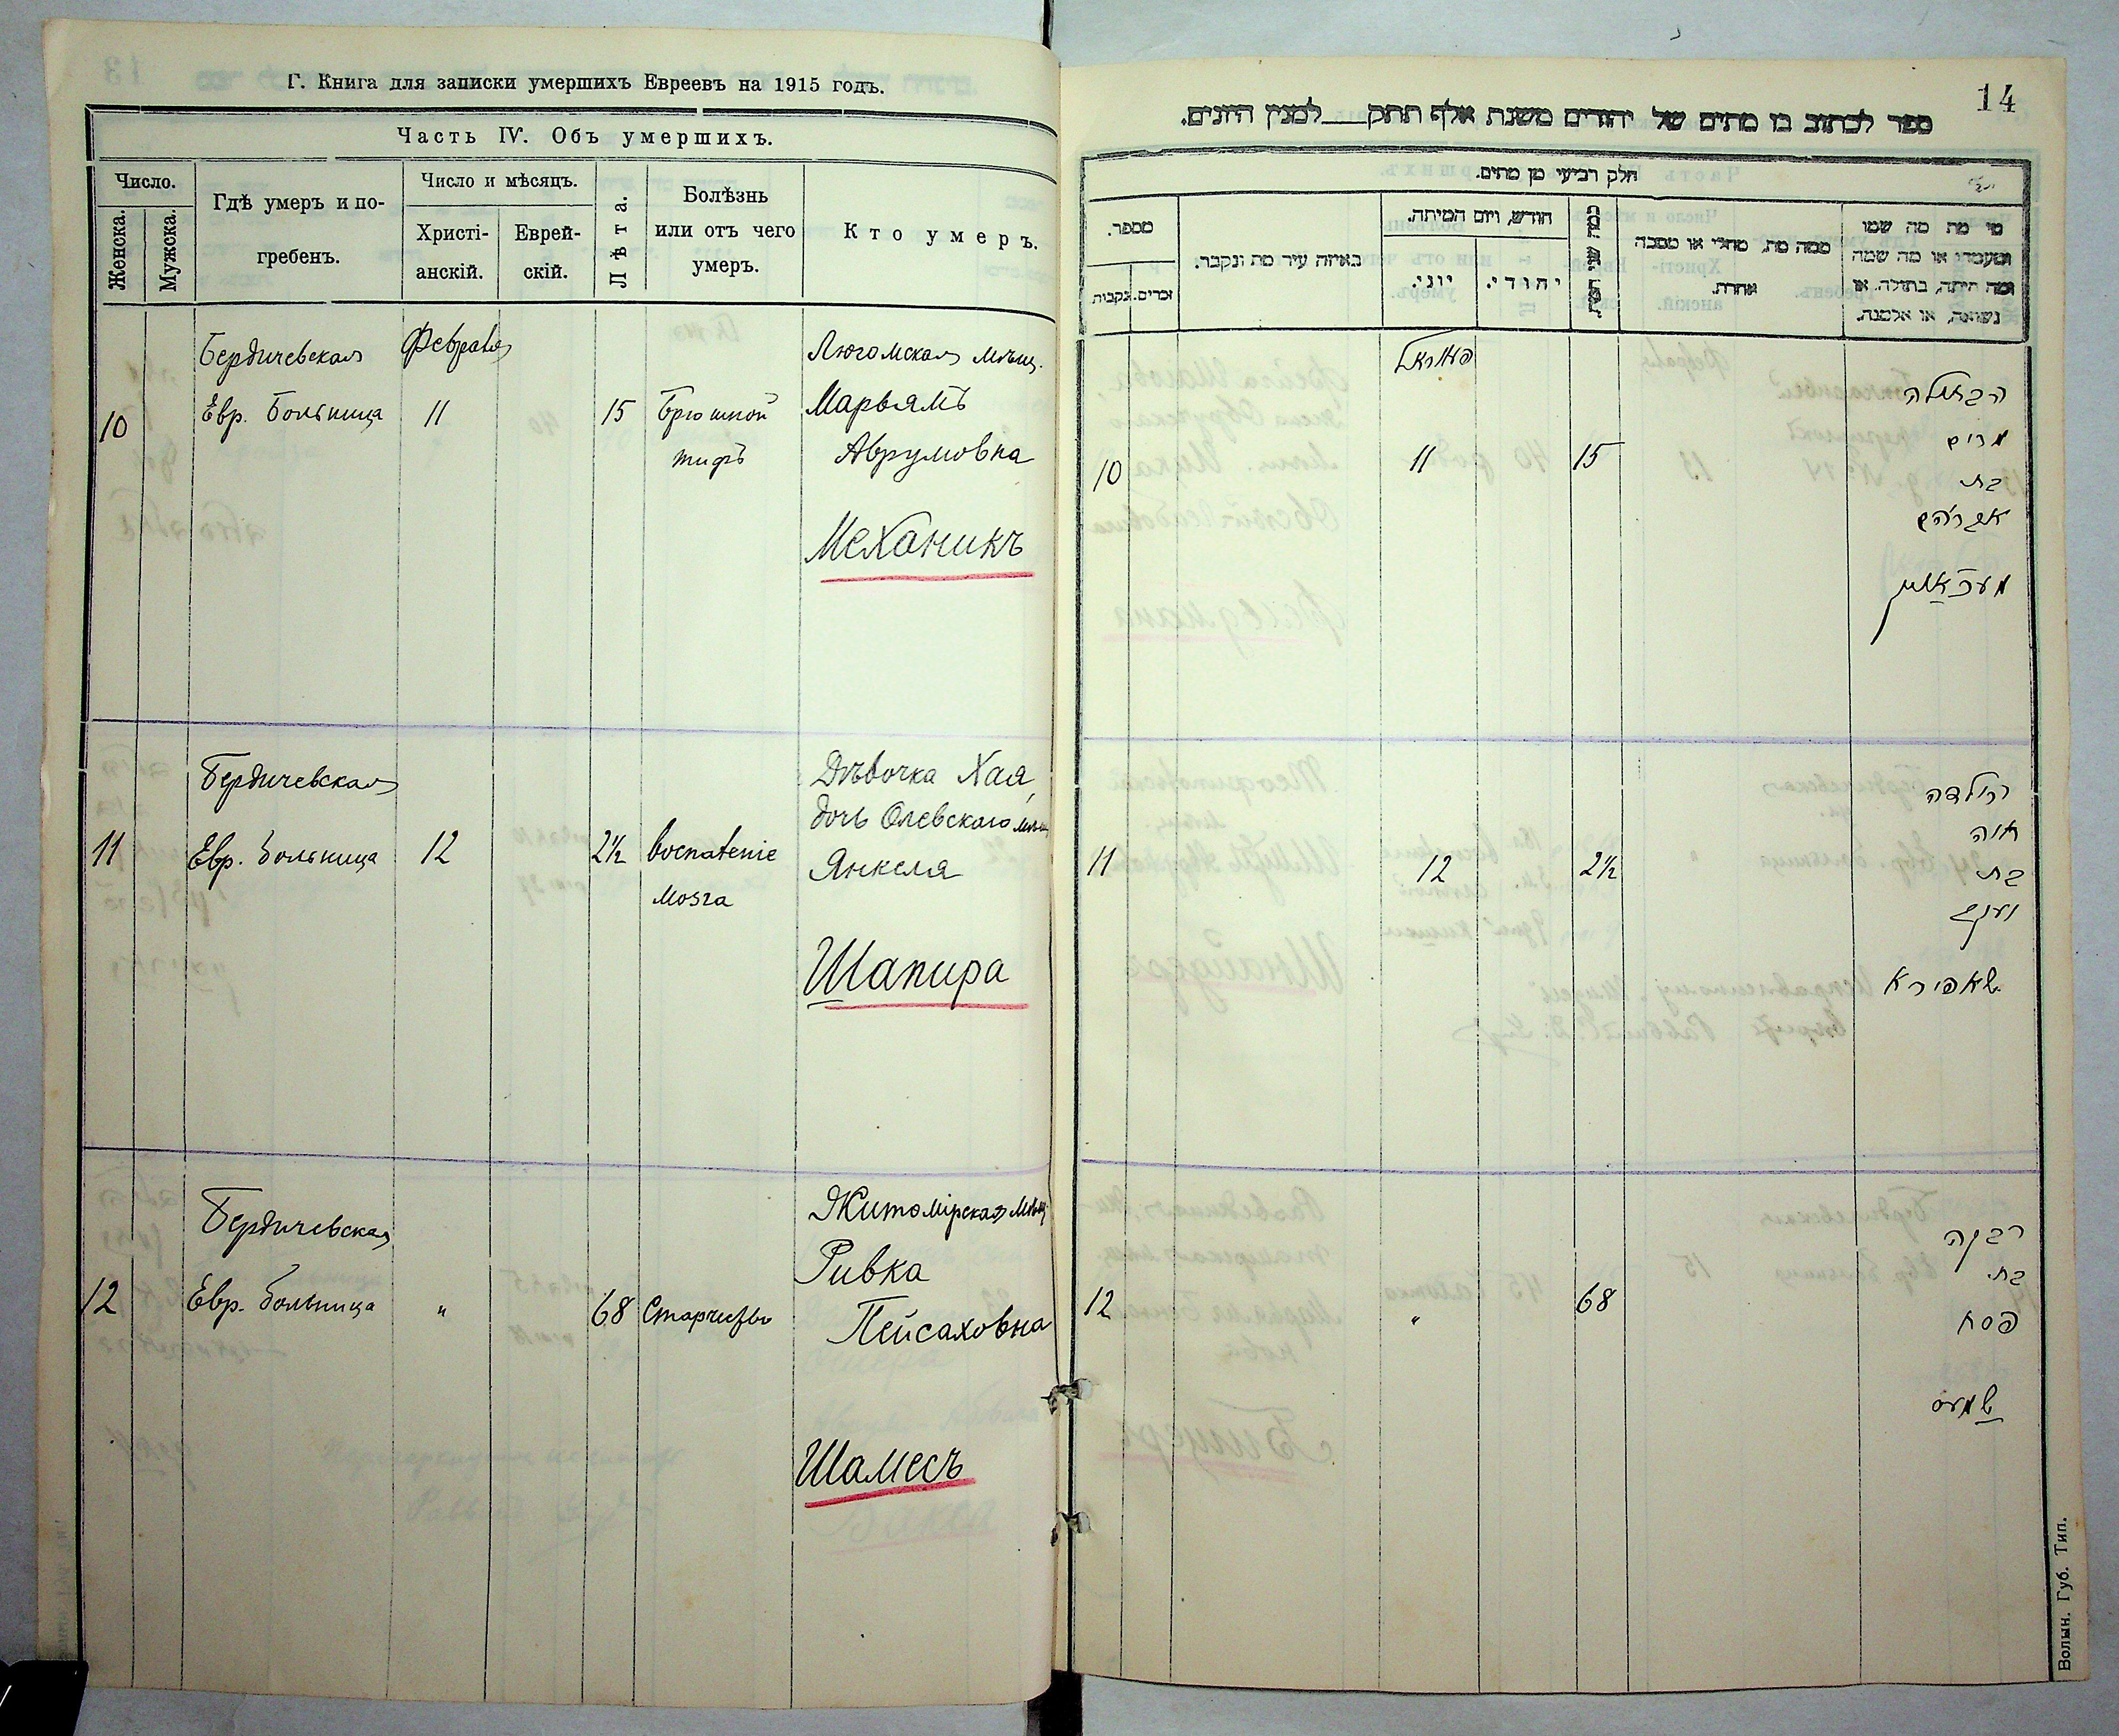 Г. Книга для записки умершихъ Евреевъ на 1915 годъ.
Часть IV. Объ умершихъ.
Число.
Женска.
Мужска.
Гдѣ умеръ и по-
гребенъ.
Число и мѣсяцъ.
Христі-
анскій.
Еврей-
скій.
Лѣта.
Болѣзнь
или отъ чего
умеръ.
Кто умеръ.
Бердичевская Февраля
10 Евр. Больница 11 15 Брюшной
тифъ
мѣщ.
Марьямъ
Аврумовна
Механикъ
Бердичевская
11 Евр. Больница 12 2½ воспаленіе
мозга
Дѣвочка Хая,
дочь Олевскаго мѣщ
Янкеля
Шапира
Бердичевская
12 Евр. Больница " 68
Житомірская мѣщ
Ривка
Пейсаховна
Шамесъ
14
ספר לכתוב בו מתים של יהודים משנת אלף תתק למנין היונים.
חלק רביעי מן מתים.
מספר.
נקבות
זכרים.
באיזה עיר מת ונקבר.
חודש, ויום המיתה.
יוני.
יהודי.
כמה שני
ממה מת, מחלי או מסבה
אחרת.
מי מת מה שמו
ומעמדו או מה שמה
ומה היתה, בתולה, או
נשואה, או אלמנה.
פעווראל
10 11 15
הבתולה
מרים
בת
אברהם
מעכאניק
11 12 2½
הילדה
חיה
בת
יענקב
שאפירא
12 " 68
רבקה
בת
פסח
שמעס
Волын. Губ. Тип.